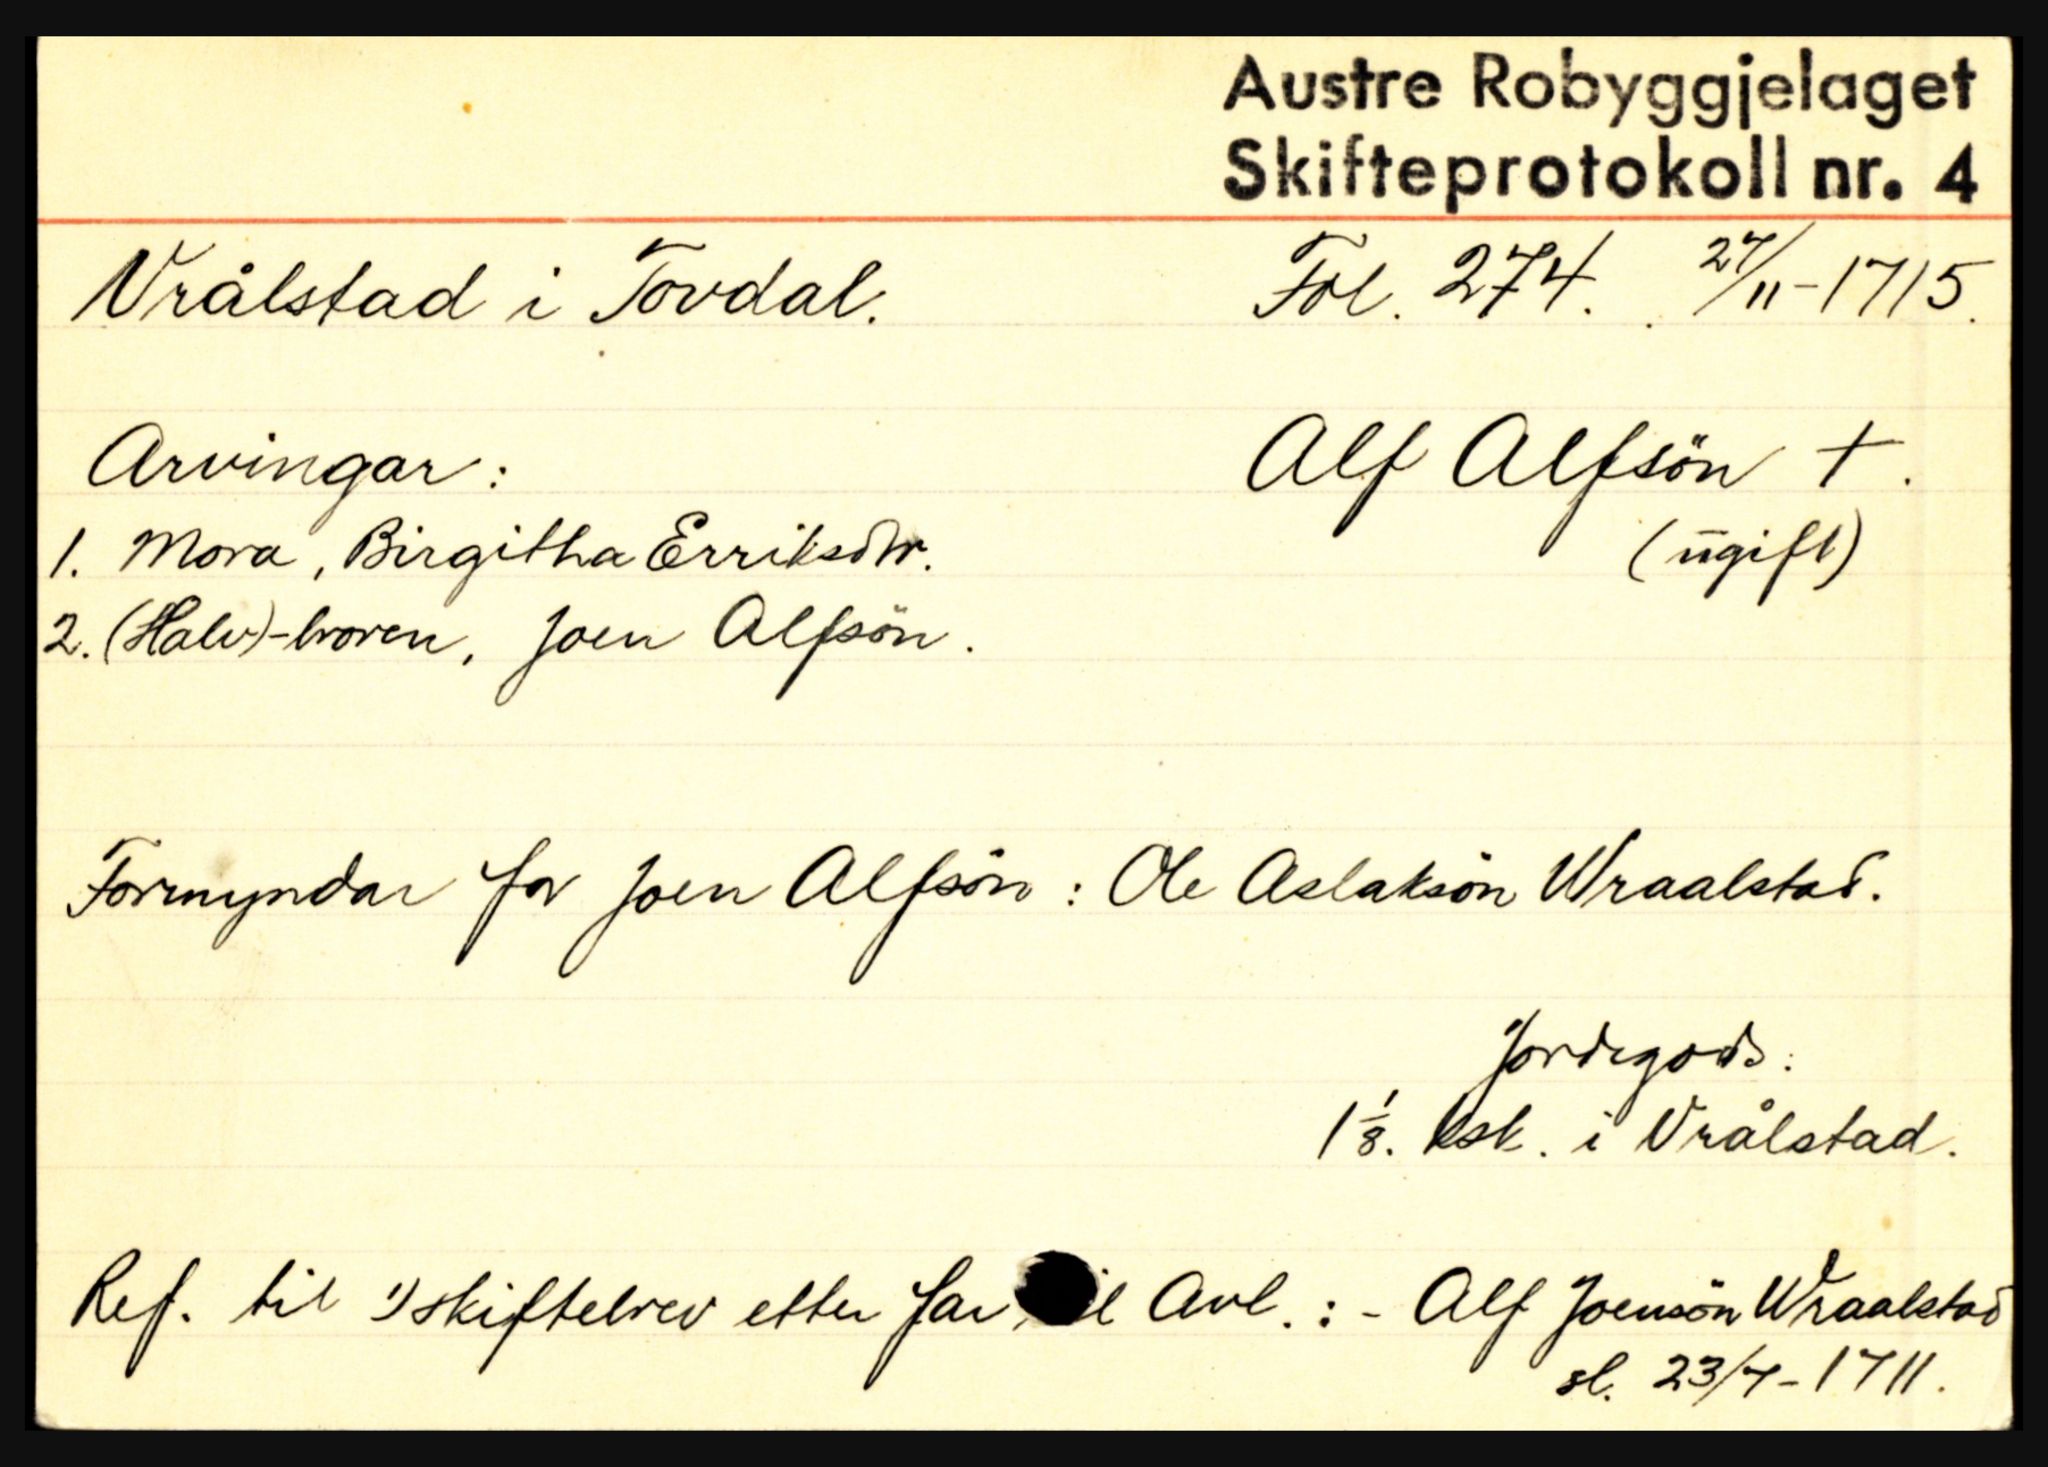 Austre Robyggjelaget
Skifteprotokoll nr. 4
Vrålstad i Tovdal. Fol. 274. 27/11-1715.
Arvingar: Alf Alfsön †.
1. Mora, Birgitha Erriksdtr. (ugift)
2. (Halv)-broren, Joen Alfsön.
Formyndar for Joen Alfsön: Ole Aslaksön Wraalstad.
Jordegods:
1 1/8. ksk. i Vrålstad.
Ref. til 1) skiftebrev etter far Avl.: - Alf Joensön Wraalstad
sl. 23/7-1711.